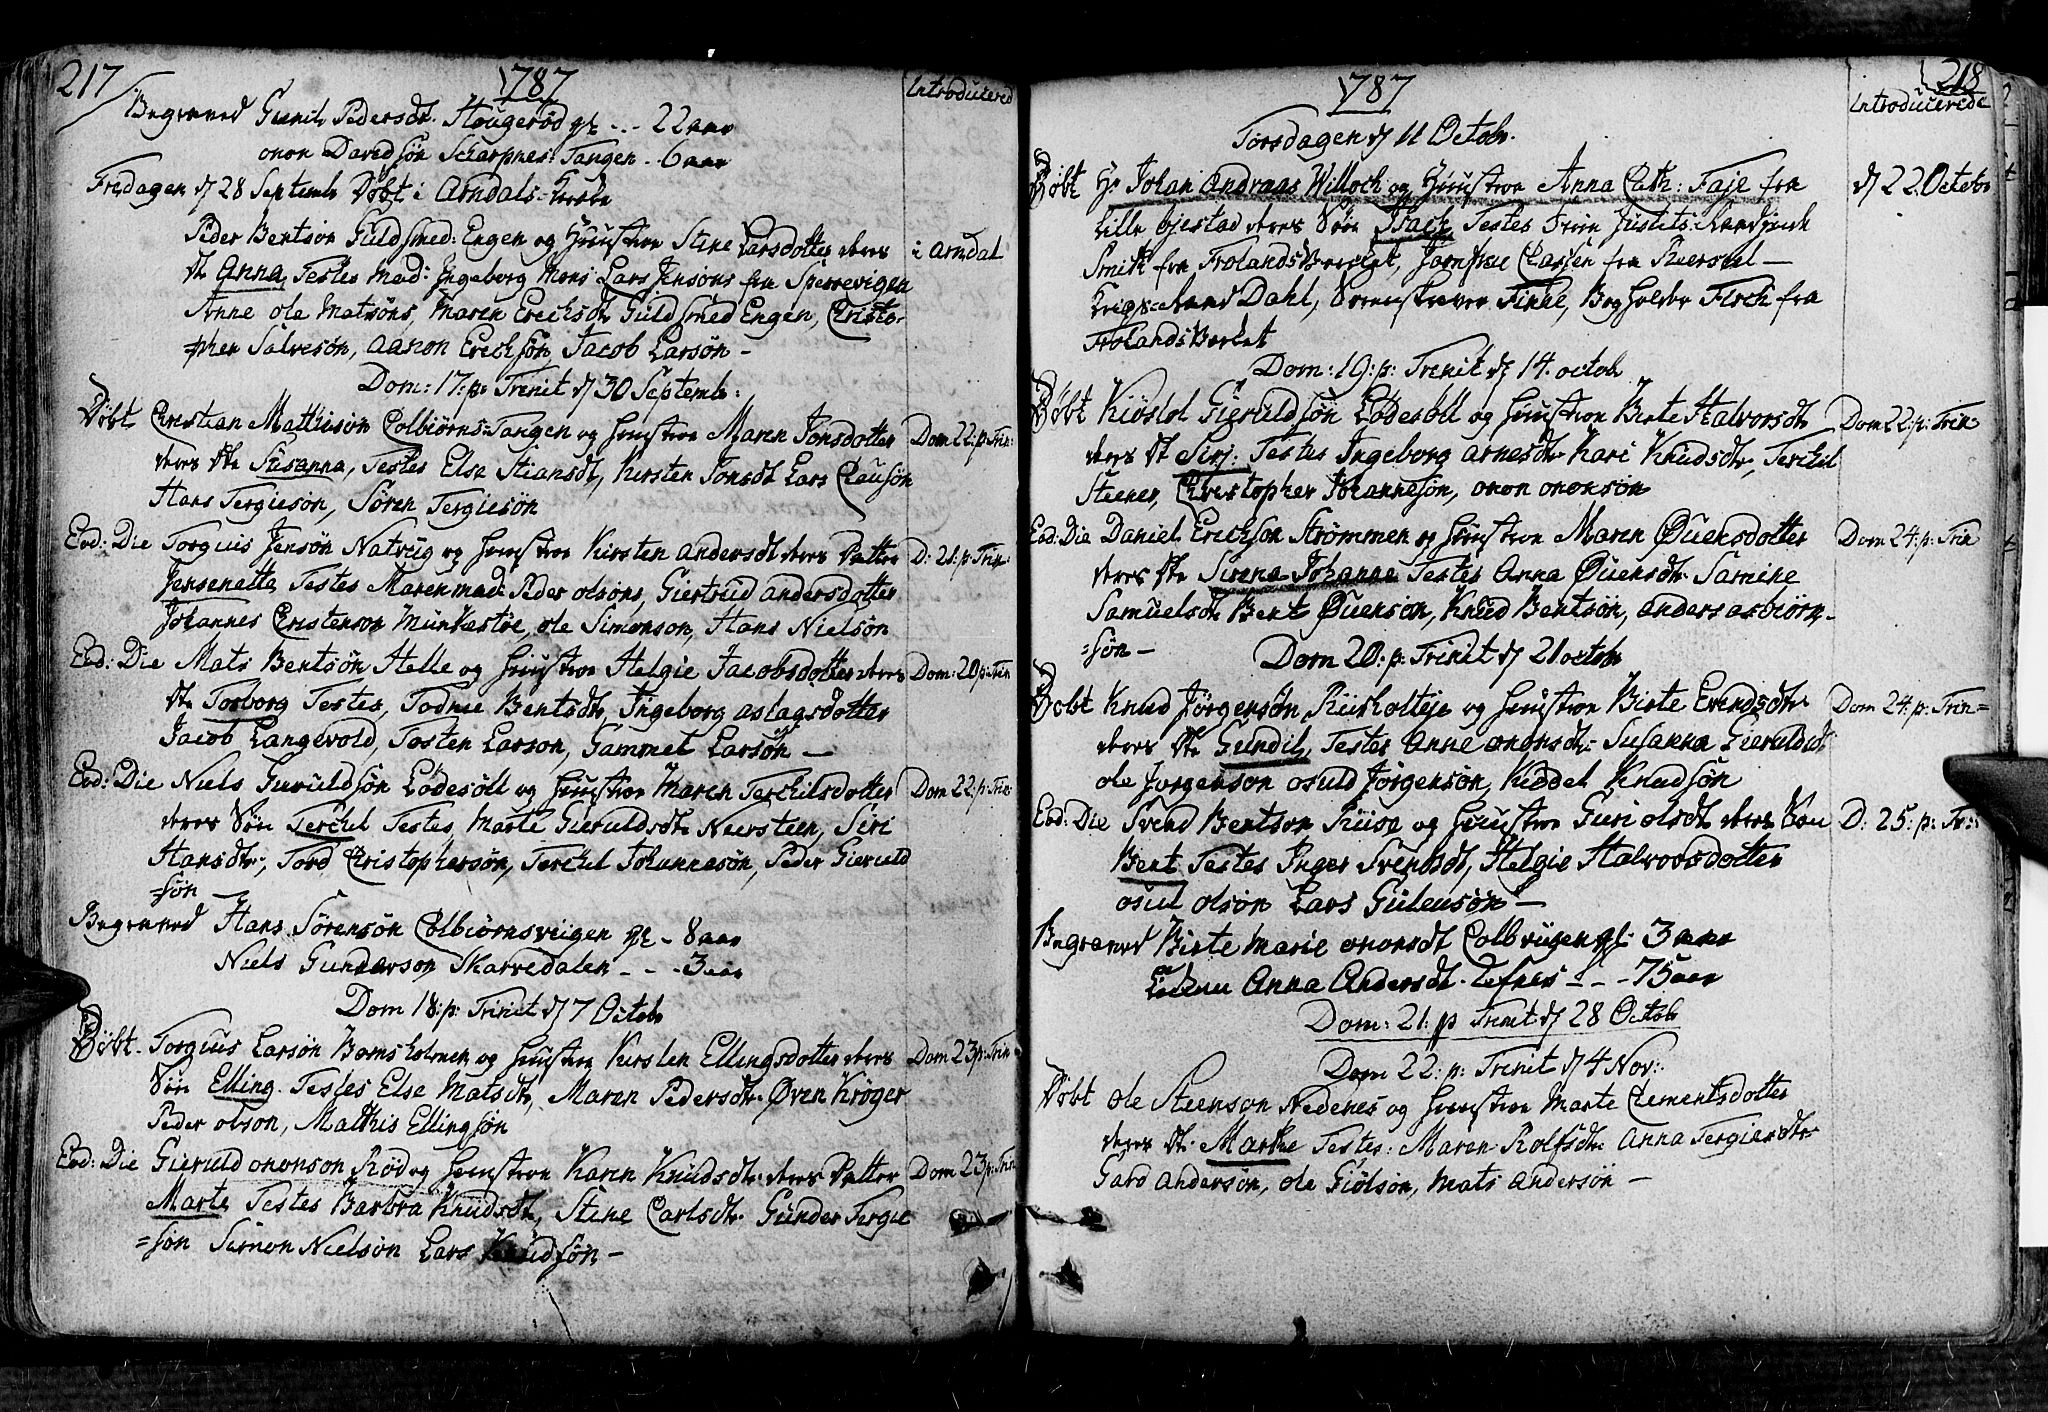 217
1787
Introducered
Begraved Gunil Pedersdt. Hougerød gl. - - 22 aar
onon Davidsøn Scharpnes: Tangen - 6 aar
Fredagen d 28 Septemb Døbt i Arndals-Kirke
Peder Bentsøn Guldsmed: Engen og Hustroe Stine Larsdotter deres
i Arndal
dt Anna Testes Mad: Ingeborg Mons Lars Jensøns fra Sperrevigen
Anne ole Matsøns, Maren Ericksdt Guldsmed Engen, Christo-
pher Salvesøn, aanon Ericksøn, Jacob Larsøn -
Dom: 17: p: Trinit d 30 Septemb:
Døbt Christian Mathisøn Colbiørns-Tangen og Hustroe Maren Jonsdotter
Dom 22: p: Trin:
deres dte Susanna, Testes Else Stiansdt, Kirsten Jonsdt Lars Clausøn
Hans Tergiesøn, Søren Tergiesøn
Eod: Die Torguus Jensøn Natvig og Hustroe Kirsten andersdt deres Datter
D: 21: p: Trin:
Jensenette Testes Maren mad: Peder olsøns, Giertrud andersdotter
Johannes Christensøn Munkestøe, ole Simonsøn, Hans Nielsøn
Eod: Die Mats Bentsøn Helle og Hustroe Helgie Jacobsdotter deres
Dom: 20 p: Trin
dte Torborg Testes, Todne Bentsdt, Ingeborg aslagsdotter
Jacob Langevold, Tosten Larsøn, Gammel Larsøn -
Eod: Die Niels Gieruldsøn Lødesøll og Hustroe Maren Terchilsdotter
Dom 22: p: Trin
deres Søn Terchel Testes, Marte Gieruldsdt Neersteen, Siri
Hansdt, Tord Christophersøn, Terchel Johannesøn, Peder Gieruld
=søn
Begraved Hans Sørensøn Colbiørnsveigen gl - 8 aar
Niels Gundersøn Skarvedalen - - - 3 aar
Dom 18: p: Trinit d 7 Octob
Døbt. Torguus Larsøn Bomsholmen og Hustroe Kirsten Ellingsdotter deres
Dom 23 p: Trin
Søn Elling. Testes Else Matsdt, Maren Pedersdt. Øven Krøger
Peder olsøn, Mathis Ellingsøn
Eod: Die Gieruld ononsøn Røed og Hustroe Karen Knudsdt. deres Datter
Dom 23 p: Trin
Marte Testes Barbra Knudsdt, Stine Carlsdt. Gunder Tergie
=søn Simon Nielsøn Lars Knudsøn -
1787
218
Introducerede
Torsdagen d 11 Octob.
Døbt Hr Johan Andreas Willoch og Hustroe Anna Cath: Faje fra
d 22 Octobr
Lille Giestad deres Søn Isach Testes Frue Justits-Raadinde
Smith fra Frolands Verket, Jomfrue Classen fra Ruerstad -
Krigs-Raad Dahl, Sorenskriver Finne, Bogholder Fisch fra
Frolands Verket
Dom: 19: p: Trinit d 14. octob
Døbt Kiøstol Gieruldsøn Lødesøll og Hustroe Birte Halvorsdt
Dom 22: p: Trin
deres dt Siri. Testes Ingeborg arnesdt. Kari Knudsdt, Terchil
Steener, Christopher Johannesøn, onon ononsøn
Eod: Die Daniel Ericksøn Strømmen og Hustroe Maren Øuensdotter
Dom 24: p: Trin
deres dte Sirena Johanne Testes Anna Øuensdt. Samine
Samuelsdt Bent Øuensøn, Knud Bentsøn, anders asbiørn-
=søn -
Dom 20: p: Trinit d 21 octob
Døbt Knud Jørgensøn Riisholteje og Hustroe Birte Evindsdt
Dom 24: p: Trin=
deres dte Gundil, Testes Anne ononsdt: Susanna Gieruldsdt
ole Jorgensøn osuld Jørgensøn, Keddel Knudsøn
Eod: Die Svend Bentsøn Riise og Hustroe Guri olsdt deres Søn
D: 25: p: Tr:
Bent Testes Inger Svendsdt, Helgie Halvorsdotter
osul olsøn Lars Gulensøn -
Begraved Birte Marie ononsdt Colbriisen gl. 3 aar
Anna Andersdt. Refnes - - 75 aar
Dom: 21: p Trinit d 28 Octob
Dom 22: p: Trinit d 4 Nov:
Døbt ole Steensøn Nedenes og Hustroe Marte Clementsdotter
deres dt. Marthe Testes: Maren Rolfsdt. Anna Tergiesdt
Gard andersøn, ole Giølsøn, Mats Andersøn -